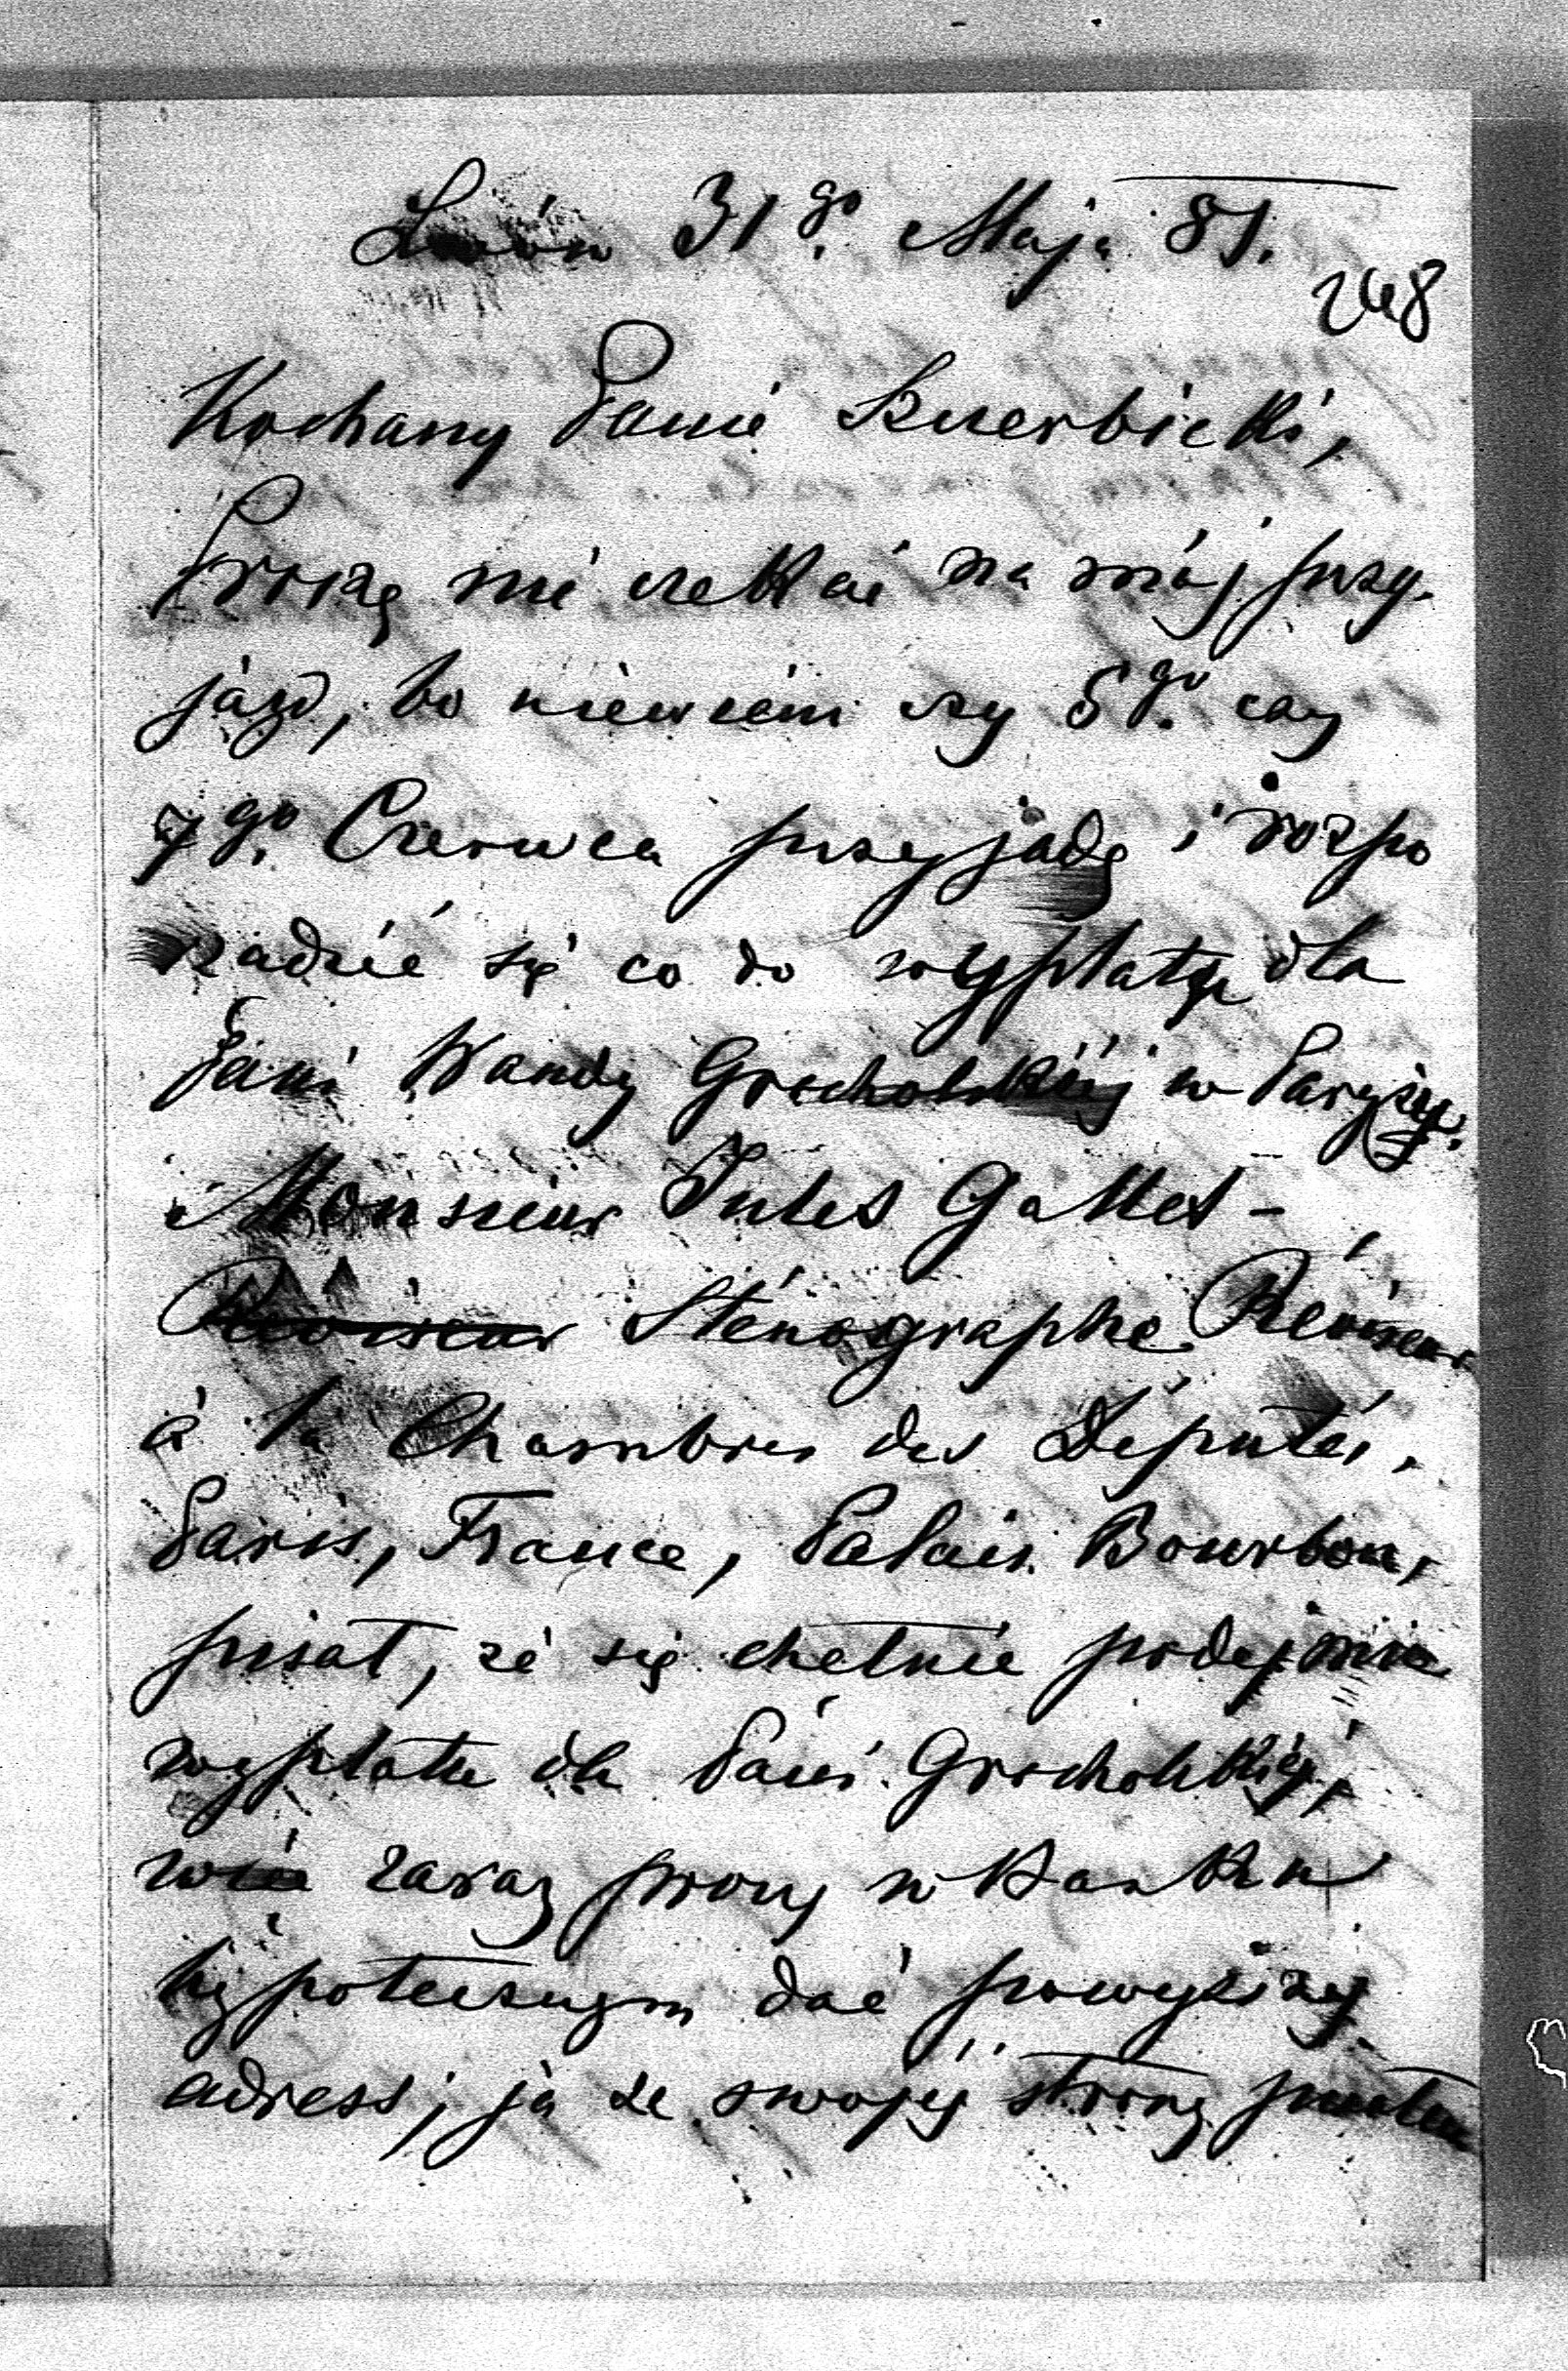 Lwów 31go Maja 81.
248
Kochany Panie Skuerbicki,
Proszę nie czekać na mój przy-
jazd, bo niewiem czy 5go czy
7go Czerwca przyjadę i rozpo
rządzić się co do wypłaty dla
Pani Wandy Grocholskiéj w Paryżu.
Monsieur Jules Gallet -
Reviseur Sténographe Réviseur
à la Chambre des Députés,
Paris, France, Palais Bourbon,
pisał, że się chętnie podejmie
wypłatu dla Pani Grocholskiéj,
zaraz proszę w Banku
hypotecznym dać powyższy
adress, ja ze swojéj strony